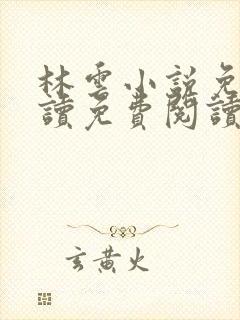 林雲小說免
讀免費閱讀
玄黃火